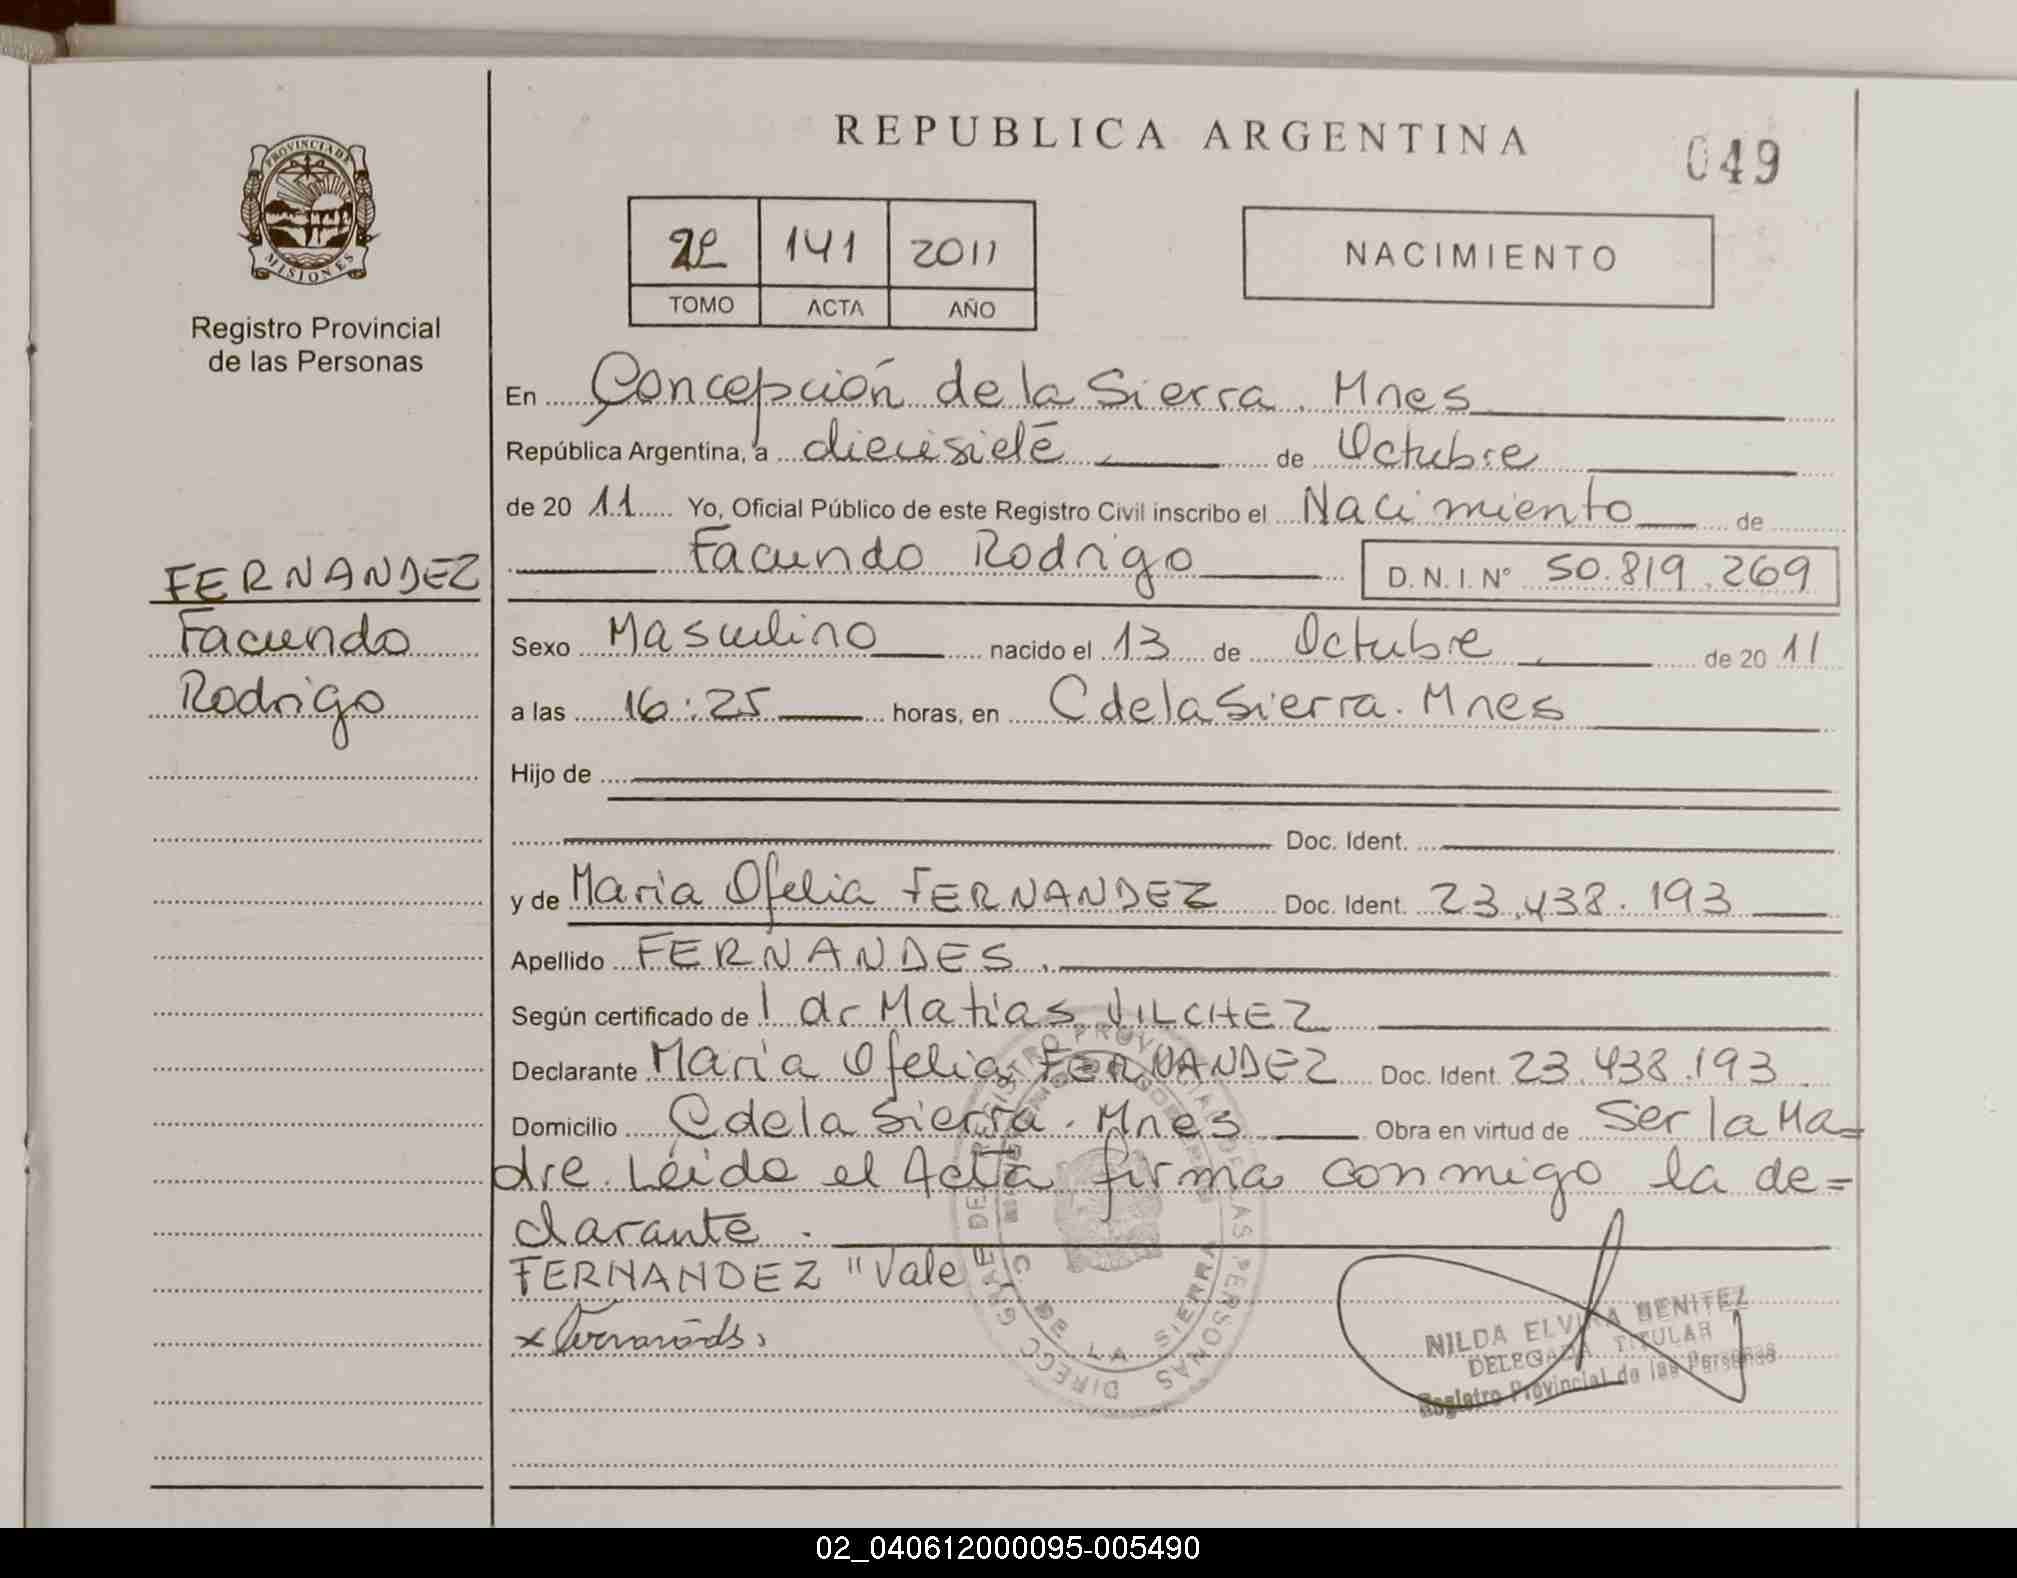 REPUBLICA ARGENTINA
049
PROVINCIA DE
MISIONES
Registro Provincial
de las Personas
2º 141 2011
TOMO ACTA AÑO
NACIMIENTO
En Concepción de la Sierra. Mnes
República Argentina, a diecisiete de Octubre
de 20 11 Yo, Oficial Público de este Registro Civil inscribo el Nacimiento de
Facundo Rodrigo D.N.I. Nº 50.819.269
FERNANDEZ
Facundo
Rodrigo
Sexo Masculino nacido el 13 de Octubre de 20 11
a las 16:25 horas, en C de la Sierra. Mnes
Hijo de
Doc. Ident.
y de Maria Ofelia FERNANDEZ Doc. Ident. 23.438.193
Apellido FERNANDES.
Según certificado de l dr Matias VILCHEZ
Declarante Maria Ofelia FERNANDEZ Doc. Ident. 23.438.193.
Domicilio C de la Sierra. Mnes Obra en virtud de Ser la Ma=
dre. Leido el Acta firma conmigo la de=
clarante.
FERNANDEZ "Vale
C. DE LA SIERRA
NILDA ELVIRA BENITEZ
DELEGADA TITULAR
Registro Provincial de las Personas
02_040612000095-005490